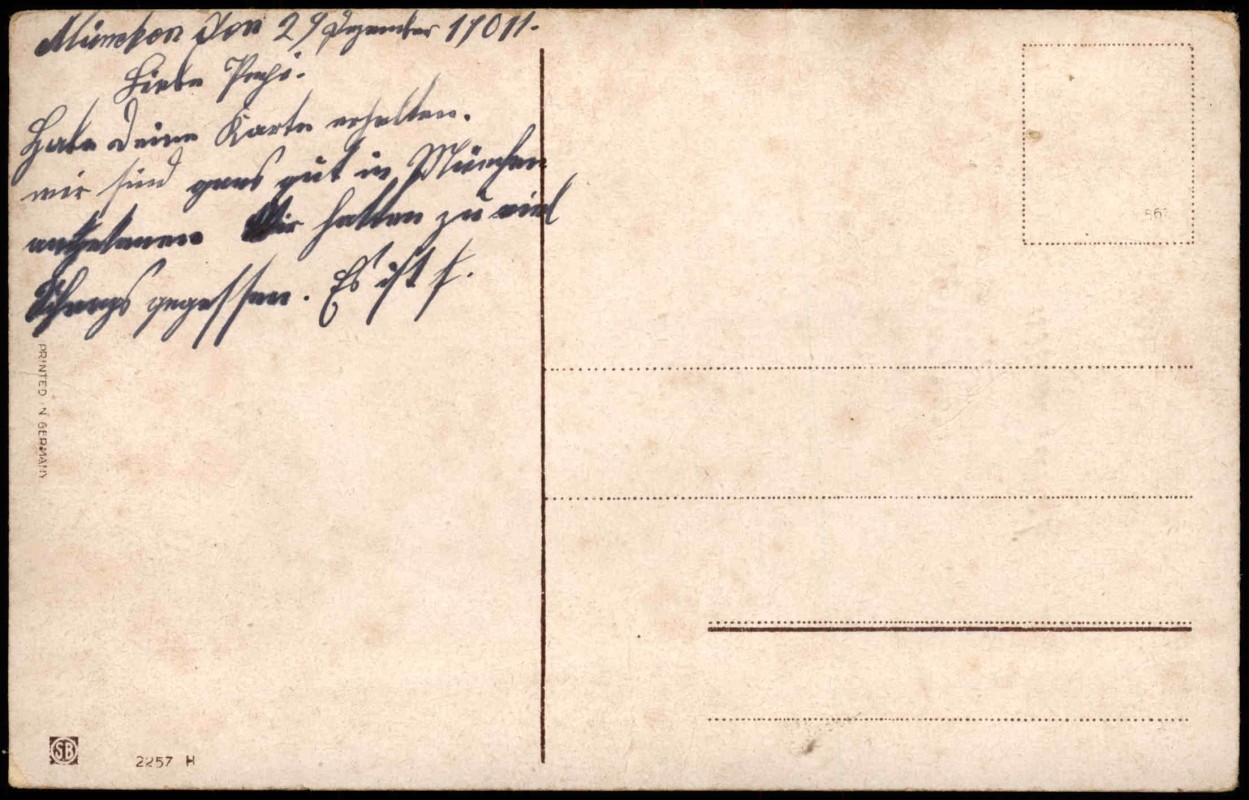 München den 29 Dezember 1911.
Liebe
Habe deine Karte erhalten.
wir sind gans gut in München
Wir hatten zu viel
gegessen. Es ist
PRINTED IN GERMANY
SB
2257 H
567